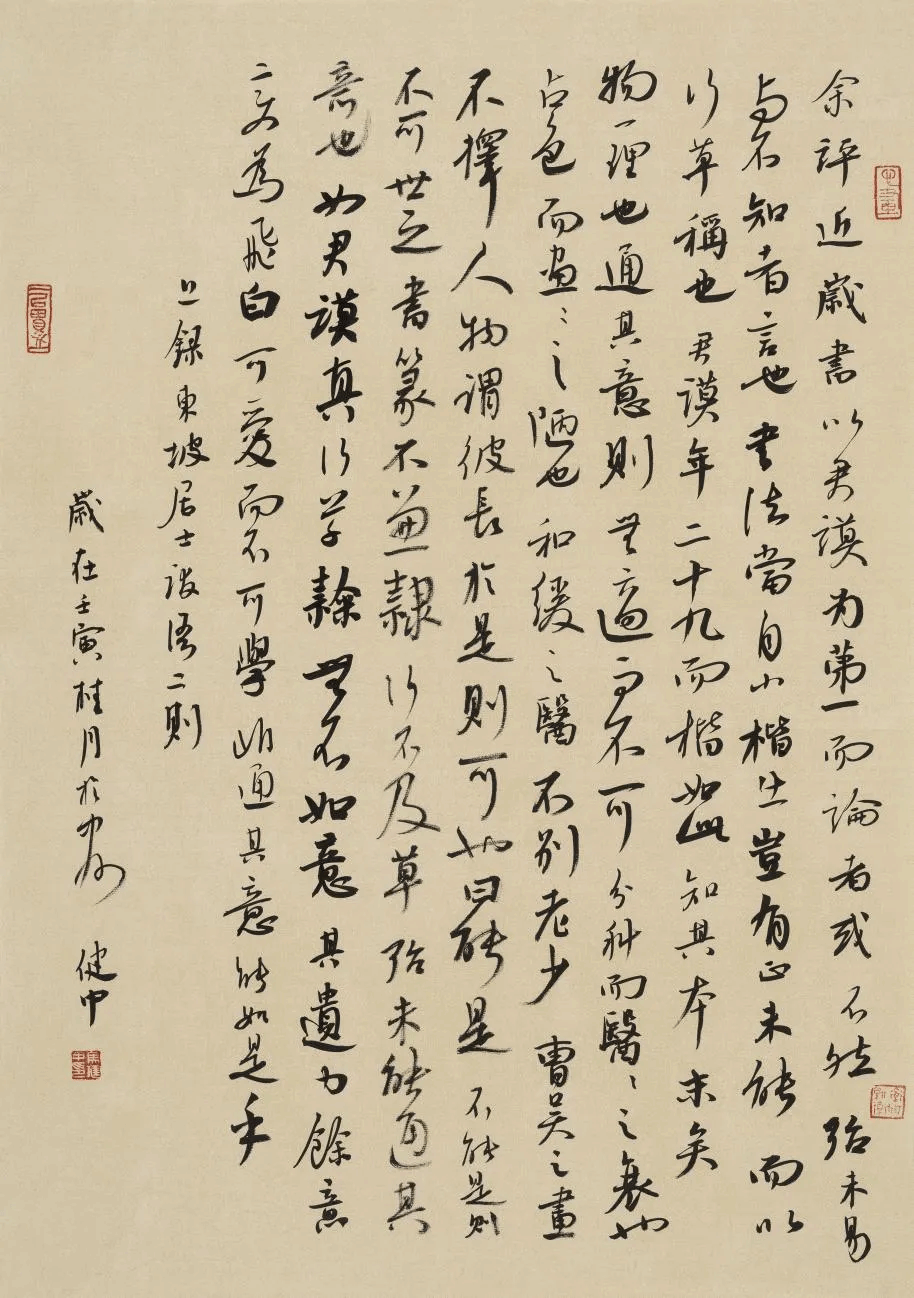 余評近歲書以君謨为第一而論者或不然殆未易
与不知者言也書法當自小楷出豈有正未能而以
行草稱也君謨年二十九而楷如此知其本末矣
物一理也通其意則無適而不可分科而醫〻之衰也
占色而画〻之陋也和缓之醫不别老少曹吴之畫
不擇人物謂彼長於是則可也曰能是不能是則
不可世之書篆不兼隸行不及草殆未能通其
意也如君謨真行草隸無不如意其遺力餘意
变為飛白可爱而不可學非通其意能如是乎
上録東坡居士语二則
歲在壬寅桂月於中州 健中